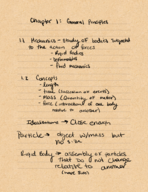 Chapter 1: General Principles
1.1 Mechanics - study of bodies subjected
to the action of forces
- Rigid bodies
- Deformable
- Fluid mechanics
1.2 Concepts
- Length
- Time (succession of events)
- Mass (Quantity of matter)
- Force (interaction of one body
to another)
Idealizations → Close enough
Particle → object w/mass but
no size
Rigid Body → assembly of particles
that do not change
relative to another